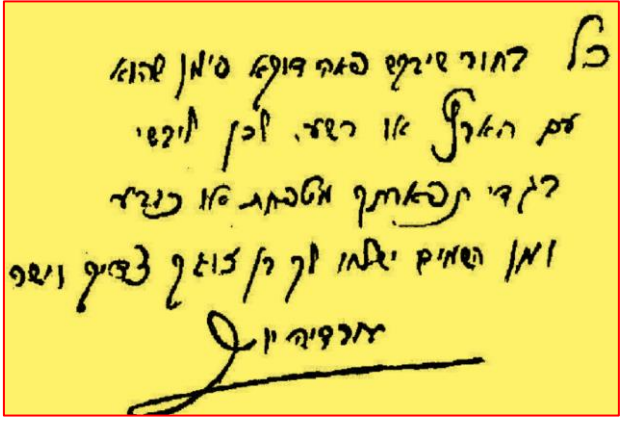 כל בחור שיבקש פאה דוקא סימן שהוא
עם הארץ או רשע. לכן לבשי
בגדי תפארתך מטפחת או כובע
ומן השמים ישלחו לך בן זוגך צדיק וישר
עובדיה יוסף